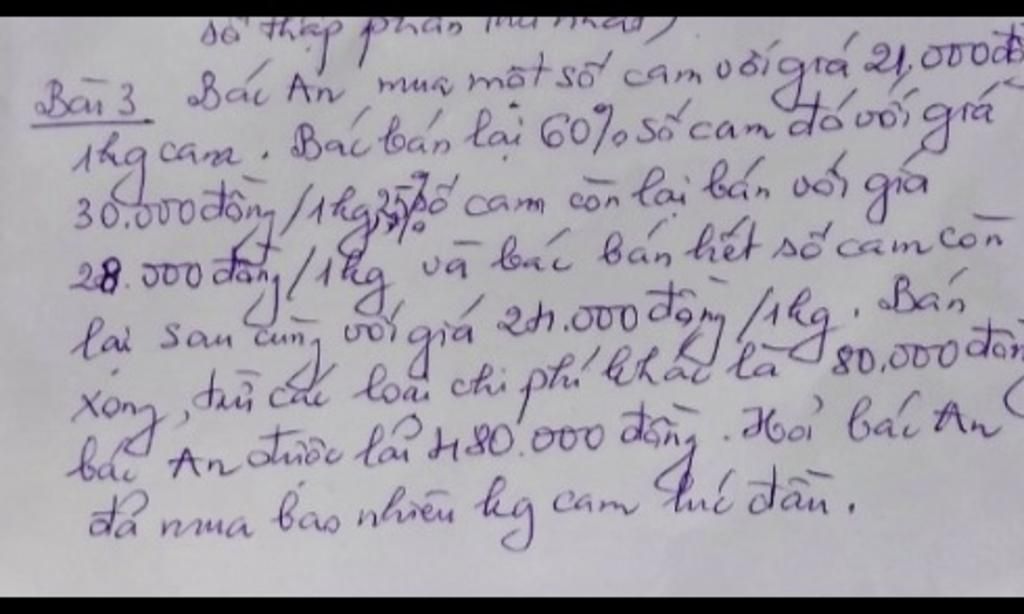 số thập phân thứ nhất)
Bài 3 Bác An mua một số cam với giá 21.000đ
1kg cam. Bác bán lại 60% số cam đó với giá
30.000 đồng/1kg, 25% số cam còn lại bán với giá
28.000 đồng/1kg và bác bán hết số cam còn
lại sau cùng với giá 24.000 đồng/1kg. Bán
xong, trừ các loại chi phí khác là 80.000 đồn
bác An được lãi 480.000 đồng. Hỏi bác An
đã mua bao nhiêu kg cam lúc đầu.